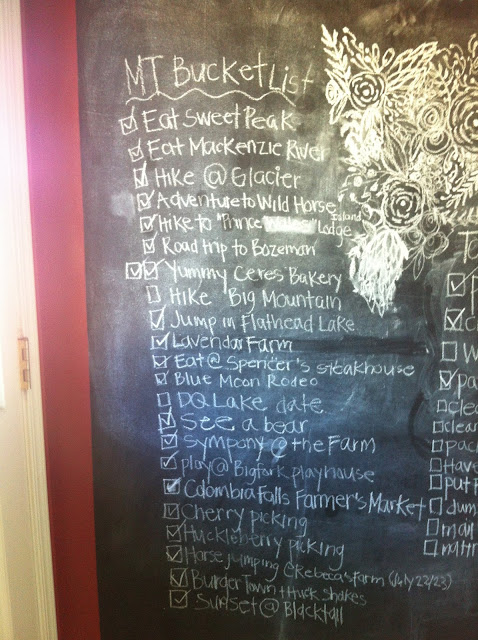 MT Bucket List
Eat Sweet Peak
Eat MacKenzie River
Hike @ Glacier
Adventure to Wild Horse Island
Hike to "Prince Wales" Lodge
Road trip to Bozeman
Yummy Ceres Bakery
Hike Big Mountain
Jump in Flathead Lake
Lavendar Farm
Eat @ Spencer's steakhouse
Blue Moon Rodeo
DQ Lake date
See a bear
Sympony @ the Farm
play @ Bigfork playhouse
Colombia Falls Farmer's Market
Cherry picking
Huckleberry picking
Horse jumping @ Rebecca's farm (July 23/23)
Burger Town + Huck shakes
Sunset @ Blacktail
To
P
C
W
Pa
clea
clean
pack
Have
put F
dum
mail